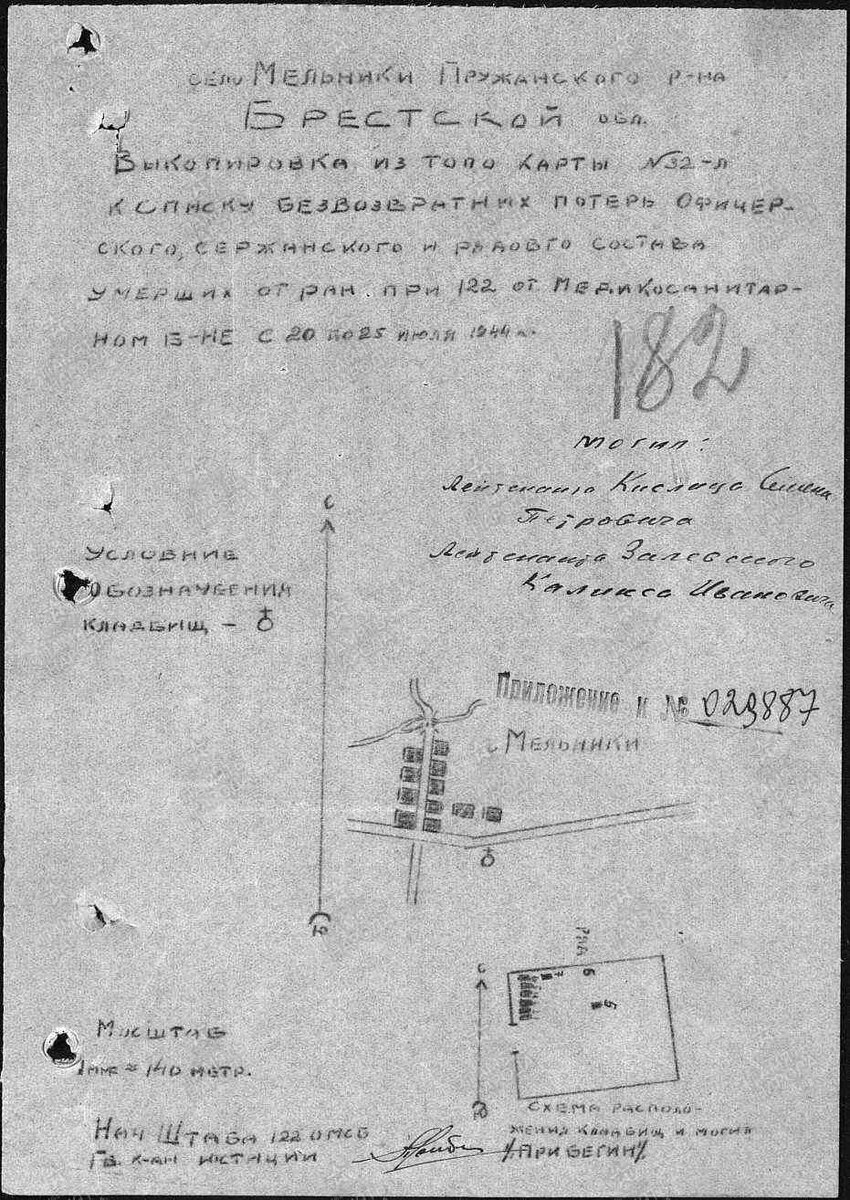 село Мельники Пружанского р-на
Брестской обл.
Выкопировка из топо карты N32-Л
к списку безвозвратних потерь офицер-
ского, сержанского и рядовго состава
умерших от ран при 122 от Медикосанитар-
ном Б-не с 20 по 25 июля 1944 г.
182
могил:
Лейтенанта Кислица Семена
Петровича
Лейтенанта
Каликса Ивановича
с
Условние
обозначения
кладбищ -
Приложение к № 029887
с Мельники
ю
Ряд
с
6
5
Масштаб
1мм = 140 метр.
ю
Схема располо-
жения кладбищ и могил
Нач Штаба 122 ОМСБ
Гв. к-ан /Прибегин/